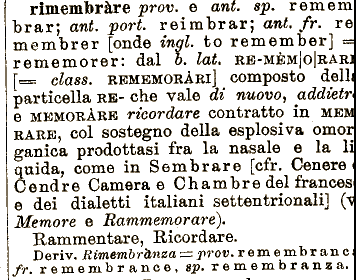 rimembràre prov. e ant. sp. remem
brar; ant. port. reimbrar; ant. fr. re
membrer [onde ingl. to remember] =
rememorer: dal b. lat. RE-MÈM|O|RARI
[= class. REMEMORÀRI] composto della
particella RE- che vale di nuovo, addietro
e MEMORÀRE ricordare contratto in MEM
RARE, col sostegno della esplosiva omor
ganica prodottasi fra la nasale e la li
quida, come in Sembrare [cfr. Cenere e
Cendre Camera e Chambre del francese
e dei dialetti italiani settentrionali] (v
Memore e Rammemorare).
Rammentare, Ricordare.
Deriv. Rimembrànza = prov. remembranc
fr. remembrance, sp. remembranza.